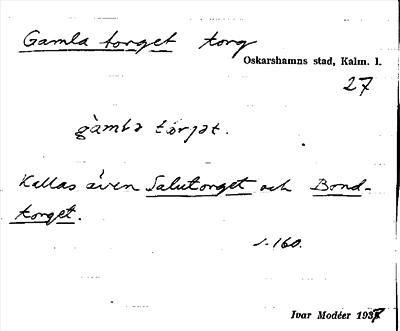 Gamla torget torg
Oskarshamns stad, Kalm. l.
27
gàmlə tórjət.
Kallas även Salutorget och Bond-
torget.
s. 160.
Ivar Modéer 1937